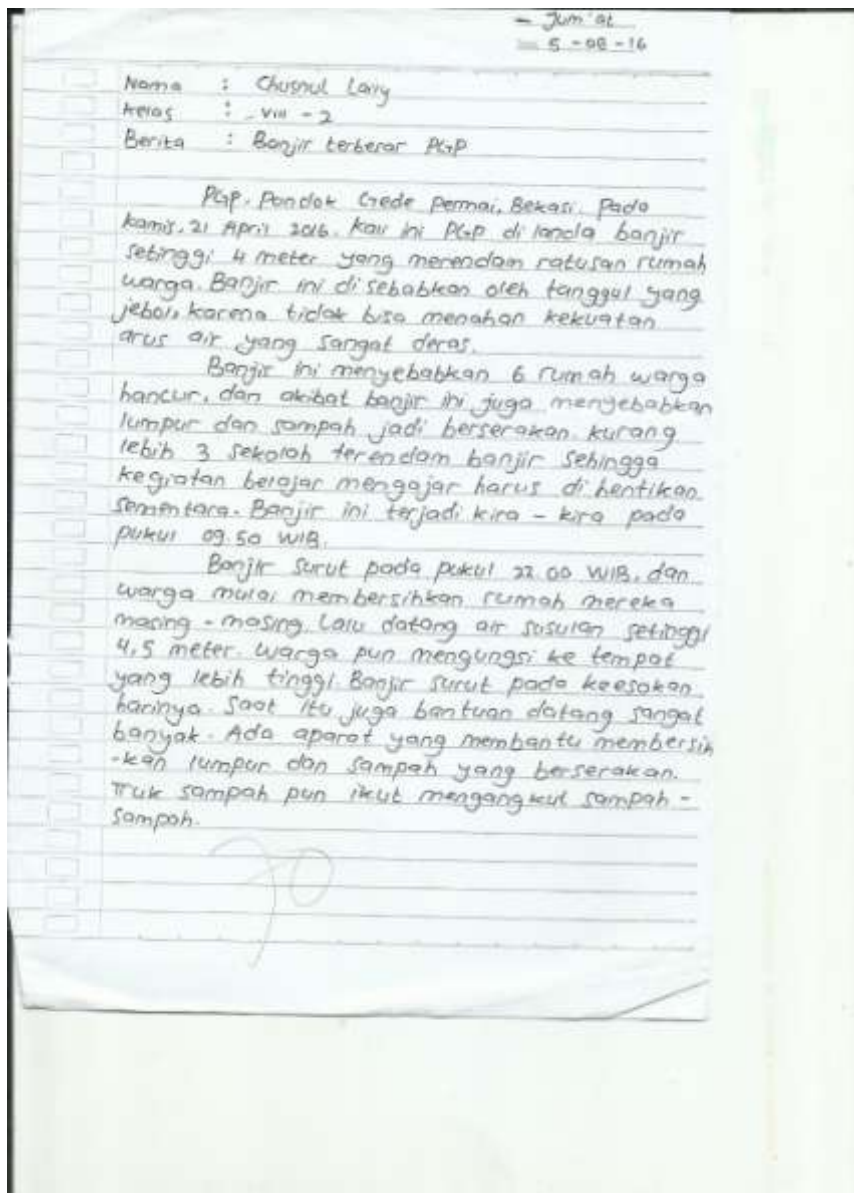 - Jum'at
5-08-16
Nama : Chusnul Laily
Kelas : VIII - 2
Berita : Banjir terbesar PGP
PGP. Pondok Gede Permai, Bekasi. Pada
kamis, 21 April 2016. kali ini PGP di landa banjir
setinggi 4 meter yang merendam ratusan rumah
warga. Banjir ini di sebabkan oleh tanggul yang
jebol, karena tidak bisa menahan kekuatan
arus air yang sangat deras.
Banjir ini menyebabkan 6 rumah warga
hancur, dan akibat banjir ini juga menyebabkan
lumpur dan sampah jadi berserakan. kurang
lebih 3 sekolah terendam banjir sehingga
kegiatan belajar mengajar harus di hentikan
sementara. Banjir ini terjadi kira - kira pada
pukul 09.50 WIB.
Banjir surut pada pukul 22.00 WIB, dan
warga mulai membersihkan rumah mereka
masing - masing. Lalu datang air susulan setinggi
4,5 meter. warga pun mengungsi ke tempat
yang lebih tinggi. Banjir surut pada keesokan
harinya. Saat itu juga bantuan datang sangat
banyak. Ada aparat yang membantu membersih
-kan lumpur dan sampah yang berserakan.
Truk sampah pun ikut mengangkut sampah -
sampah.
70